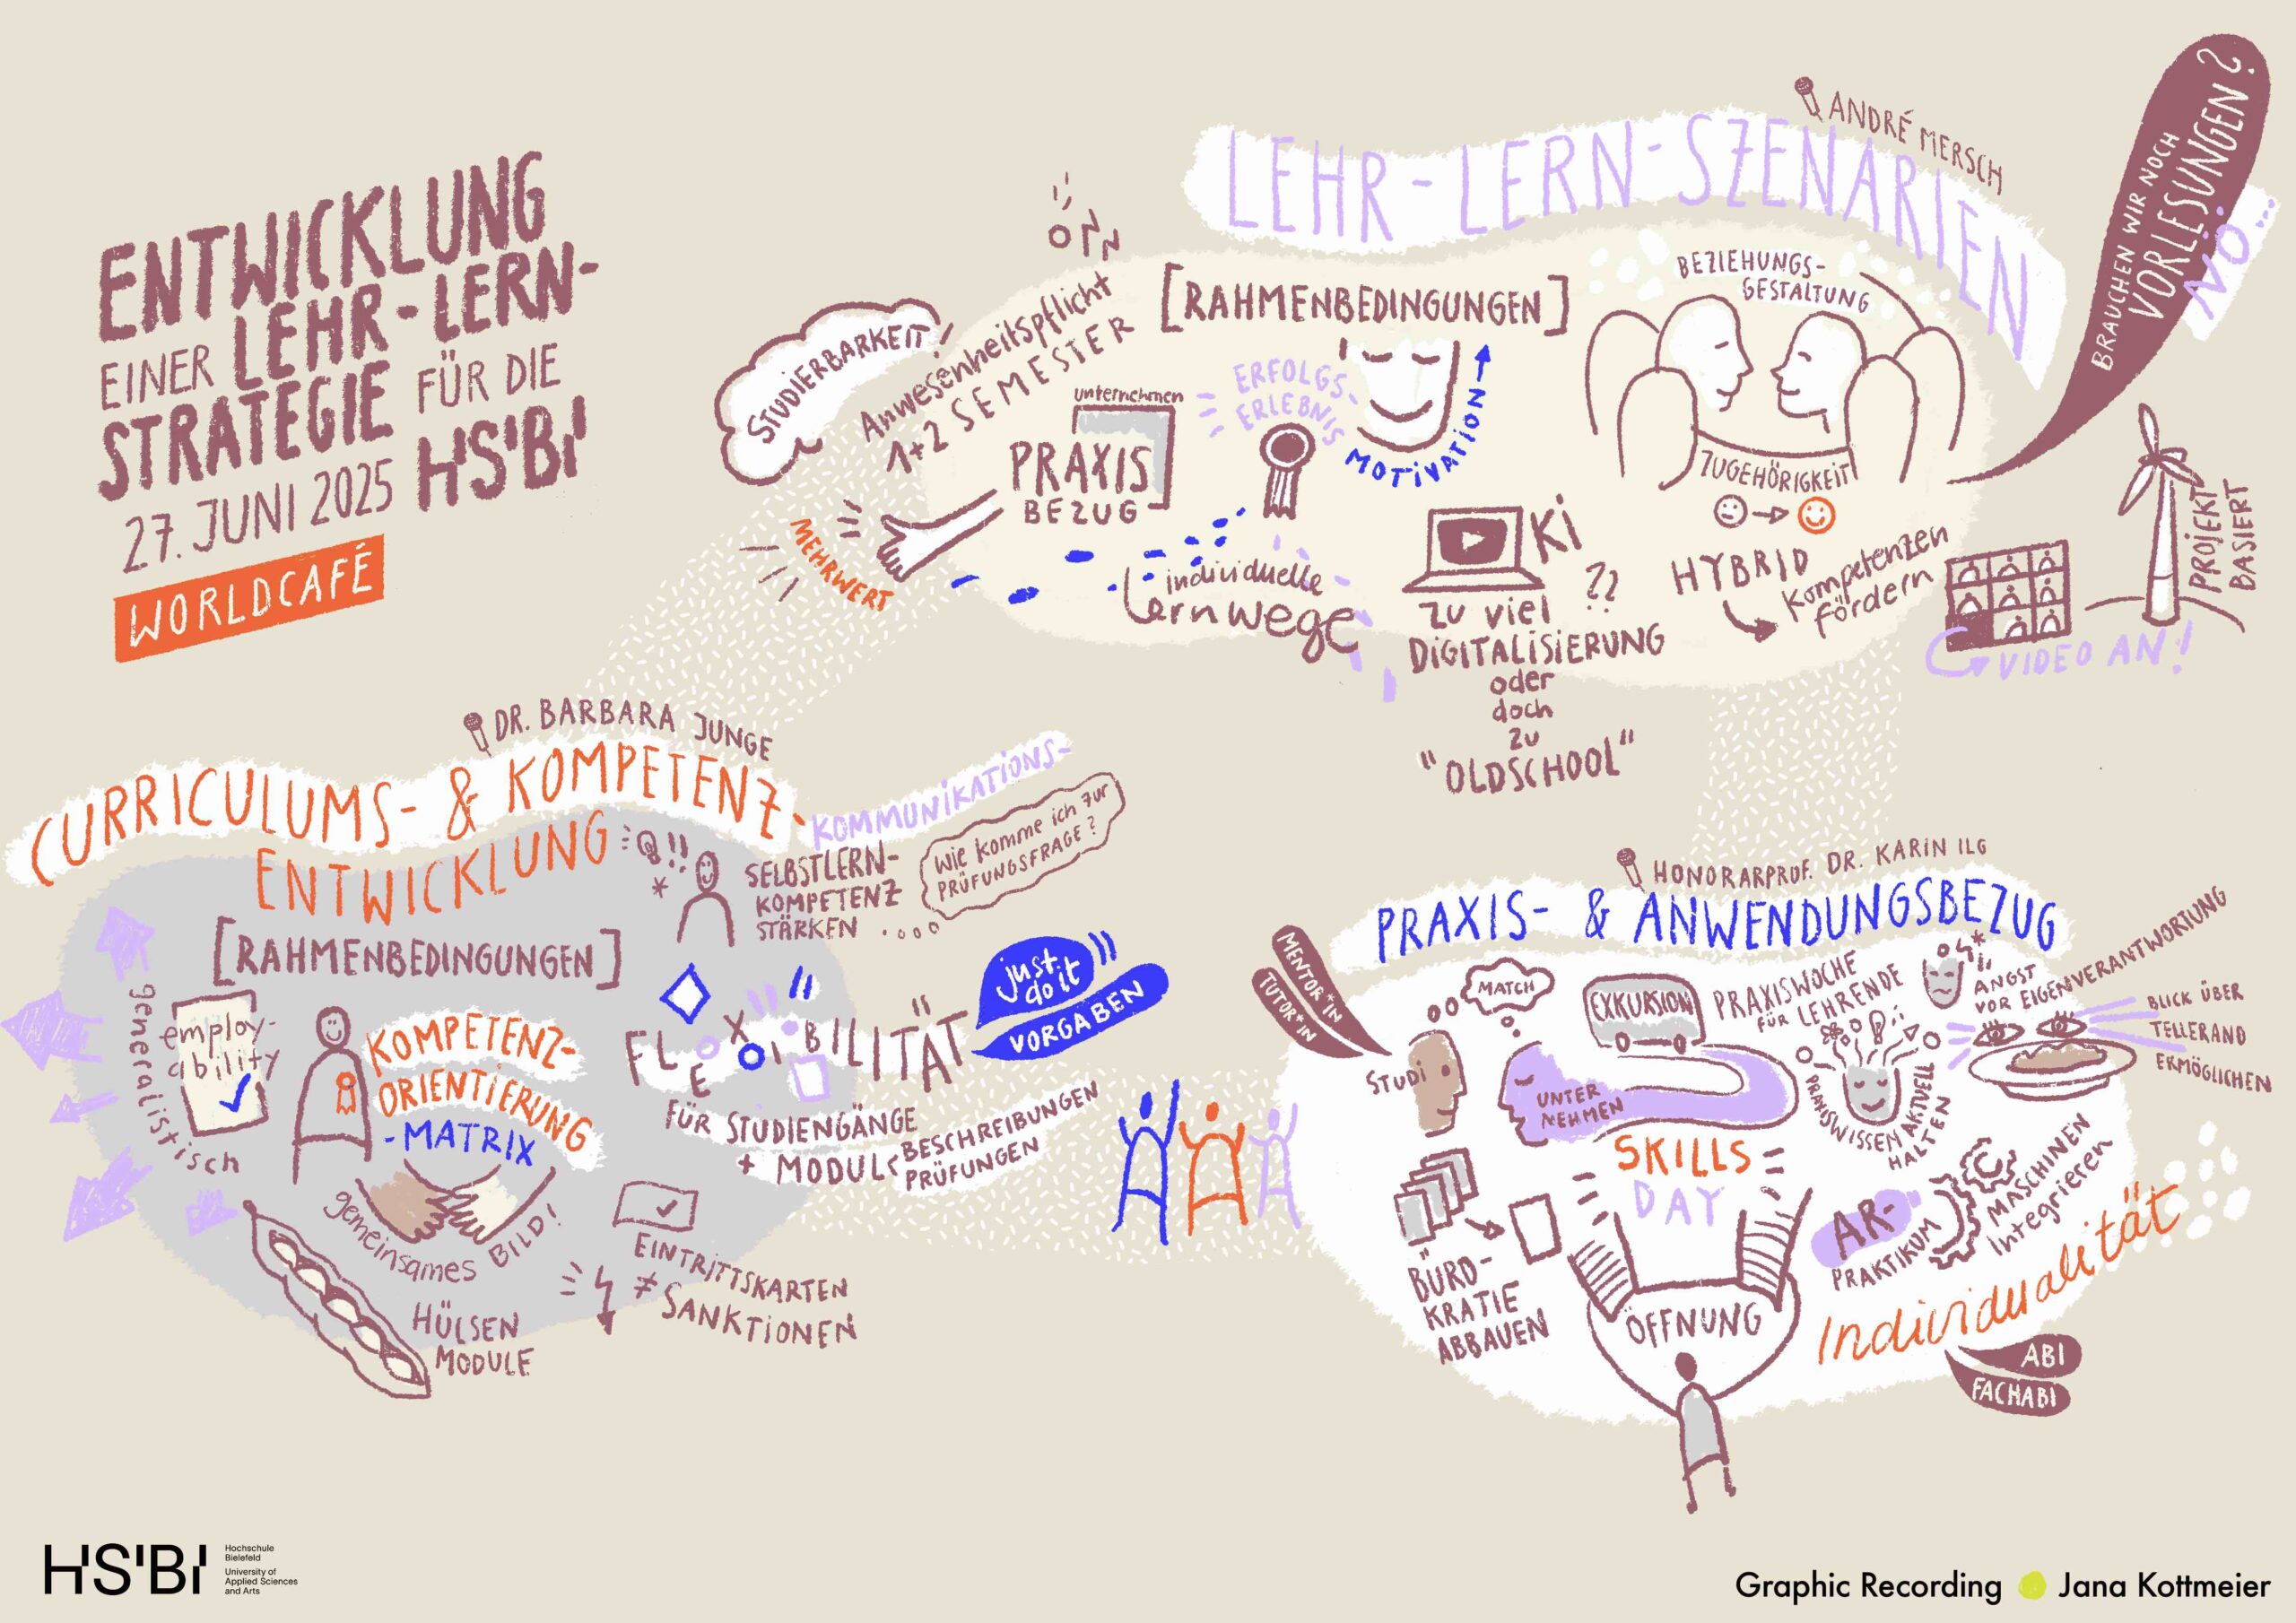 ENTWICKLUNG
EINER LEHR-LERN-
STRATEGIE FÜR DIE
27. JUNI 2025 HS'BI
WORLDCAFÉ
ANDRÉ MERSCH
LEHR-LERN-SZENARIEN
BRAUCHEN WIR NOCH
VORLESUNGEN?
NÖ...
STUDIERBARKEIT!
Anwesenheitspflicht
1+2 SEMESTER
[RAHMENBEDINGUNGEN]
unternehmen
PRAXIS
BEZUG
MEHRWERT
ERFOLGS-
ERLEBNIS
MOTIVATION
individuelle
Lernwege
KI
??
zu viel
DIGITALISIERUNG
oder
doch
zu
"OLDSCHOOL"
BEZIEHUNGS-
GESTALTUNG
ZUGEHÖRIGKEIT
HYBRID
Kompetenzen
fördern
VIDEO AN!
PROJEKT
BASIERT
DR. BARBARA JUNGE
CURRICULUMS- & KOMPETENZ-
ENTWICKLUNG
[RAHMENBEDINGUNGEN]
generalistisch
employ-
ability
KOMPETENZ-
ORIENTIERUNG
-MATRIX
gemeinsames BILD!
HÜLSEN
MODULE
KOMMUNIKATIONS-
SELBSTLERN-
KOMPETENZ
STÄRKEN
Wie komme ich zur
PRÜFUNGSFRAGE?
FLEXIBILITÄT
just
do it
VORGABEN
FÜR STUDIENGÄNGE
+ MODUL< BESCHREIBUNGEN
PRÜFUNGEN
EINTRITTSKARTEN
≠ SANKTIONEN
HONORARPROF. DR. KARIN ILG
PRAXIS- & ANWENDUNGSBEZUG
MENTOR*IN
TUTOR*IN
MATCH
STUDI
UNTER
NEHMEN
EXKURSION
PRAXISWOCHE
FÜR LEHRENDE
ANGST
VOR EIGENVERANTWORTUNG
BLICK ÜBER
TELLERAND
ERMÖGLICHEN
PRAXISWISSEN AKTUELL
HALTEN
SKILLS
DAY
BÜRO-
KRATIE
ABBAUEN
ÖFFNUNG
AR-
PRAKTIKUM
MASCHINEN
Integrieren
Individualität
ABI
FACHABI
HS'BI
Hochschule
Bielefeld
University of
Applied Sciences
and Arts
Graphic Recording Jana Kottmeier